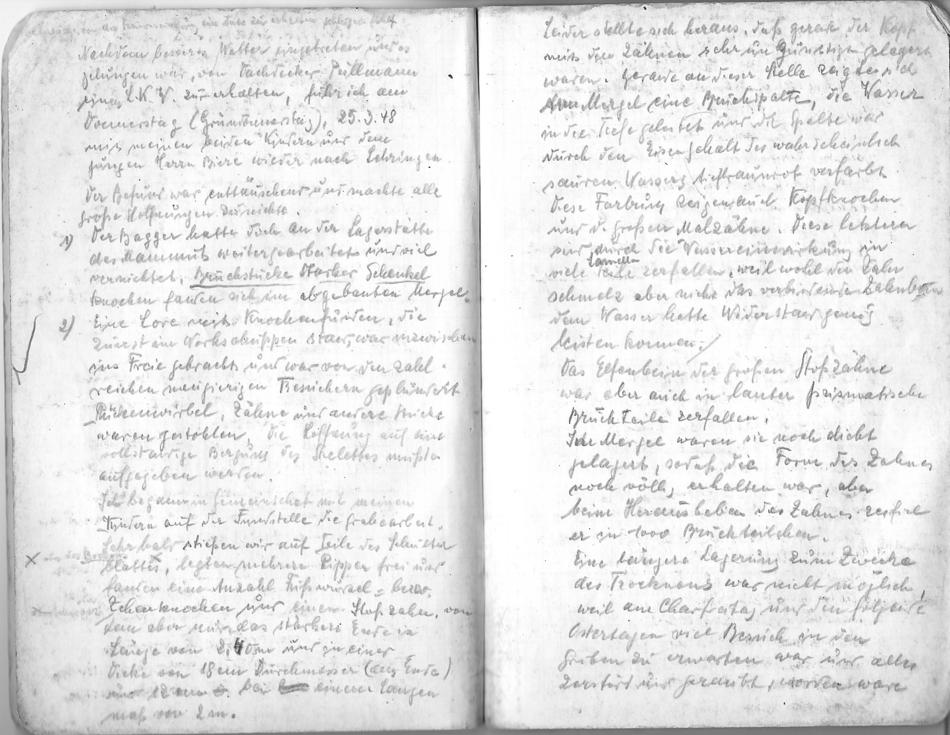 Nachdem besseres Wetter eingetreten und es
gelungen war, von Dachdecker Püllmann
einen L.K.W. zu erhalten, fuhr ich am
Donnerstag (Gründonnerstag), 25.3.48
mit meinen beiden Kindern und dem
jungen Herrn Biere wieder nach Lehringen.
Der Befund war enttäuschend und machte alle
große Hoffnungen zunichte.
1) Der Bagger hatte sich an der Lagerstätte
des Mammuts weitergearbeitet und viel
vernichtet, Bruchstücke starker Schenkel
knochen fanden sich im abgebauten Mergel.
2) Eine Lore mit Knochenfunden, die
zuerst im Werkschuppen stand, war inzwischen
ins Freie gebracht und war von den zahl-
reichen neugierigen Besuchern geplündert
Rückenwirbel, Zähne und andere Stücke
waren gestohlen, die Hoffnung auf eine
vollständige Bergung des Skelettes mußte
aufgegeben werden.
Ich begann in Gemeinschaft mit meinen
Kindern auf der Fundstelle die Grabearbeit.
Sehr bald stießen wir auf Teile des Schulter
blattes, legten mehrere Rippen frei und
fanden eine Anzahl Fußwurzel- bezw.
Zehenknochen und einen Stoßzahn, von
dem aber nur das stärkere Ende in
Länge von 2,40m und in einer
Dicke von 18 cm Durchmesser (am Ende)
und 12 cm bei einem Längen
maß von 2 m.
Leider stellte sich heraus, daß gerade der Kopf
mit den Zähnen sehr ungünstig gelagert
waren. Gerade an dieser Stelle zeigte sich
im Mergel eine Bruchspalte, die Wasser
in die Tiefe geleitet und die Spalte war
durch den Eisengehalt des wahrscheinlich
sauren Wassers tiefbraunrot verfärbt.
Diese Färbung zeigen auch Kopfknochen
und die großen Malzähne. Diese letzteren
sind durch die Wassereinwirkung in
viele Lamellen zerfallen, weil wohl der Zahn
schmelz aber nicht das verbindende Zahnbein
dem Wasser hatte Widerstand genug
leisten können.
Das Elfenbein der großen Stoßzähne
war aber auch in lauter prismatische
Bruchteile zerfallen.
Im Mergel waren sie noch dicht
gelagert, sodaß die Form des Zahnes
noch völlig erhalten war, aber
beim Herausheben des Zahnes zerfiel
er in 1000 Bruchteilchen.
Eine längere Lagerung zum Zwecke
des Trocknens war nicht möglich,
weil am Charfreitag und den folgende
Ostertagen viel Besuch in den
Gruben zu erwarten war und alles
zerstört und geraubt worden wäre